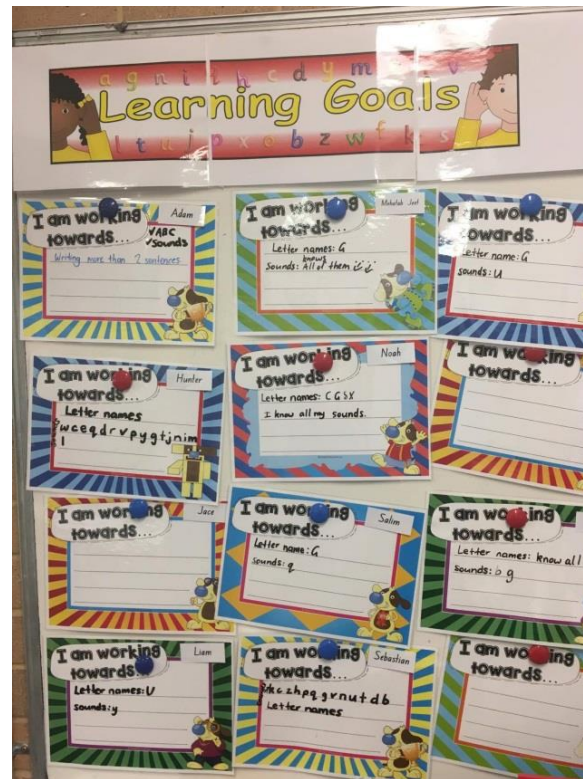 a g n i t h c d y m e v
Learning Goals
l t u j p x o b z w f k s
I am working towards...
Adam
✓ABC
✓Sounds
Writing more than 2 sentences
I am working towards...
Letter names: G
knows
sounds: All of them
I am working towards...
Letter name: G
sounds: U
I am working towards...
Hunter
Letter names
w c e q d r v p y g t j n i m
l
I am working towards...
Noah
Letter names: C G S X
I know all my sounds.
I am working towards...
I am working towards...
Jace
I am working towards...
Salim
Letter name: G
sounds: q
I am working towards...
Letter names: know all
sounds: b g
I am working towards...
Liam
Letter names: U
sounds: y
I am working towards...
Sebastian
Letter names
I am working towards...